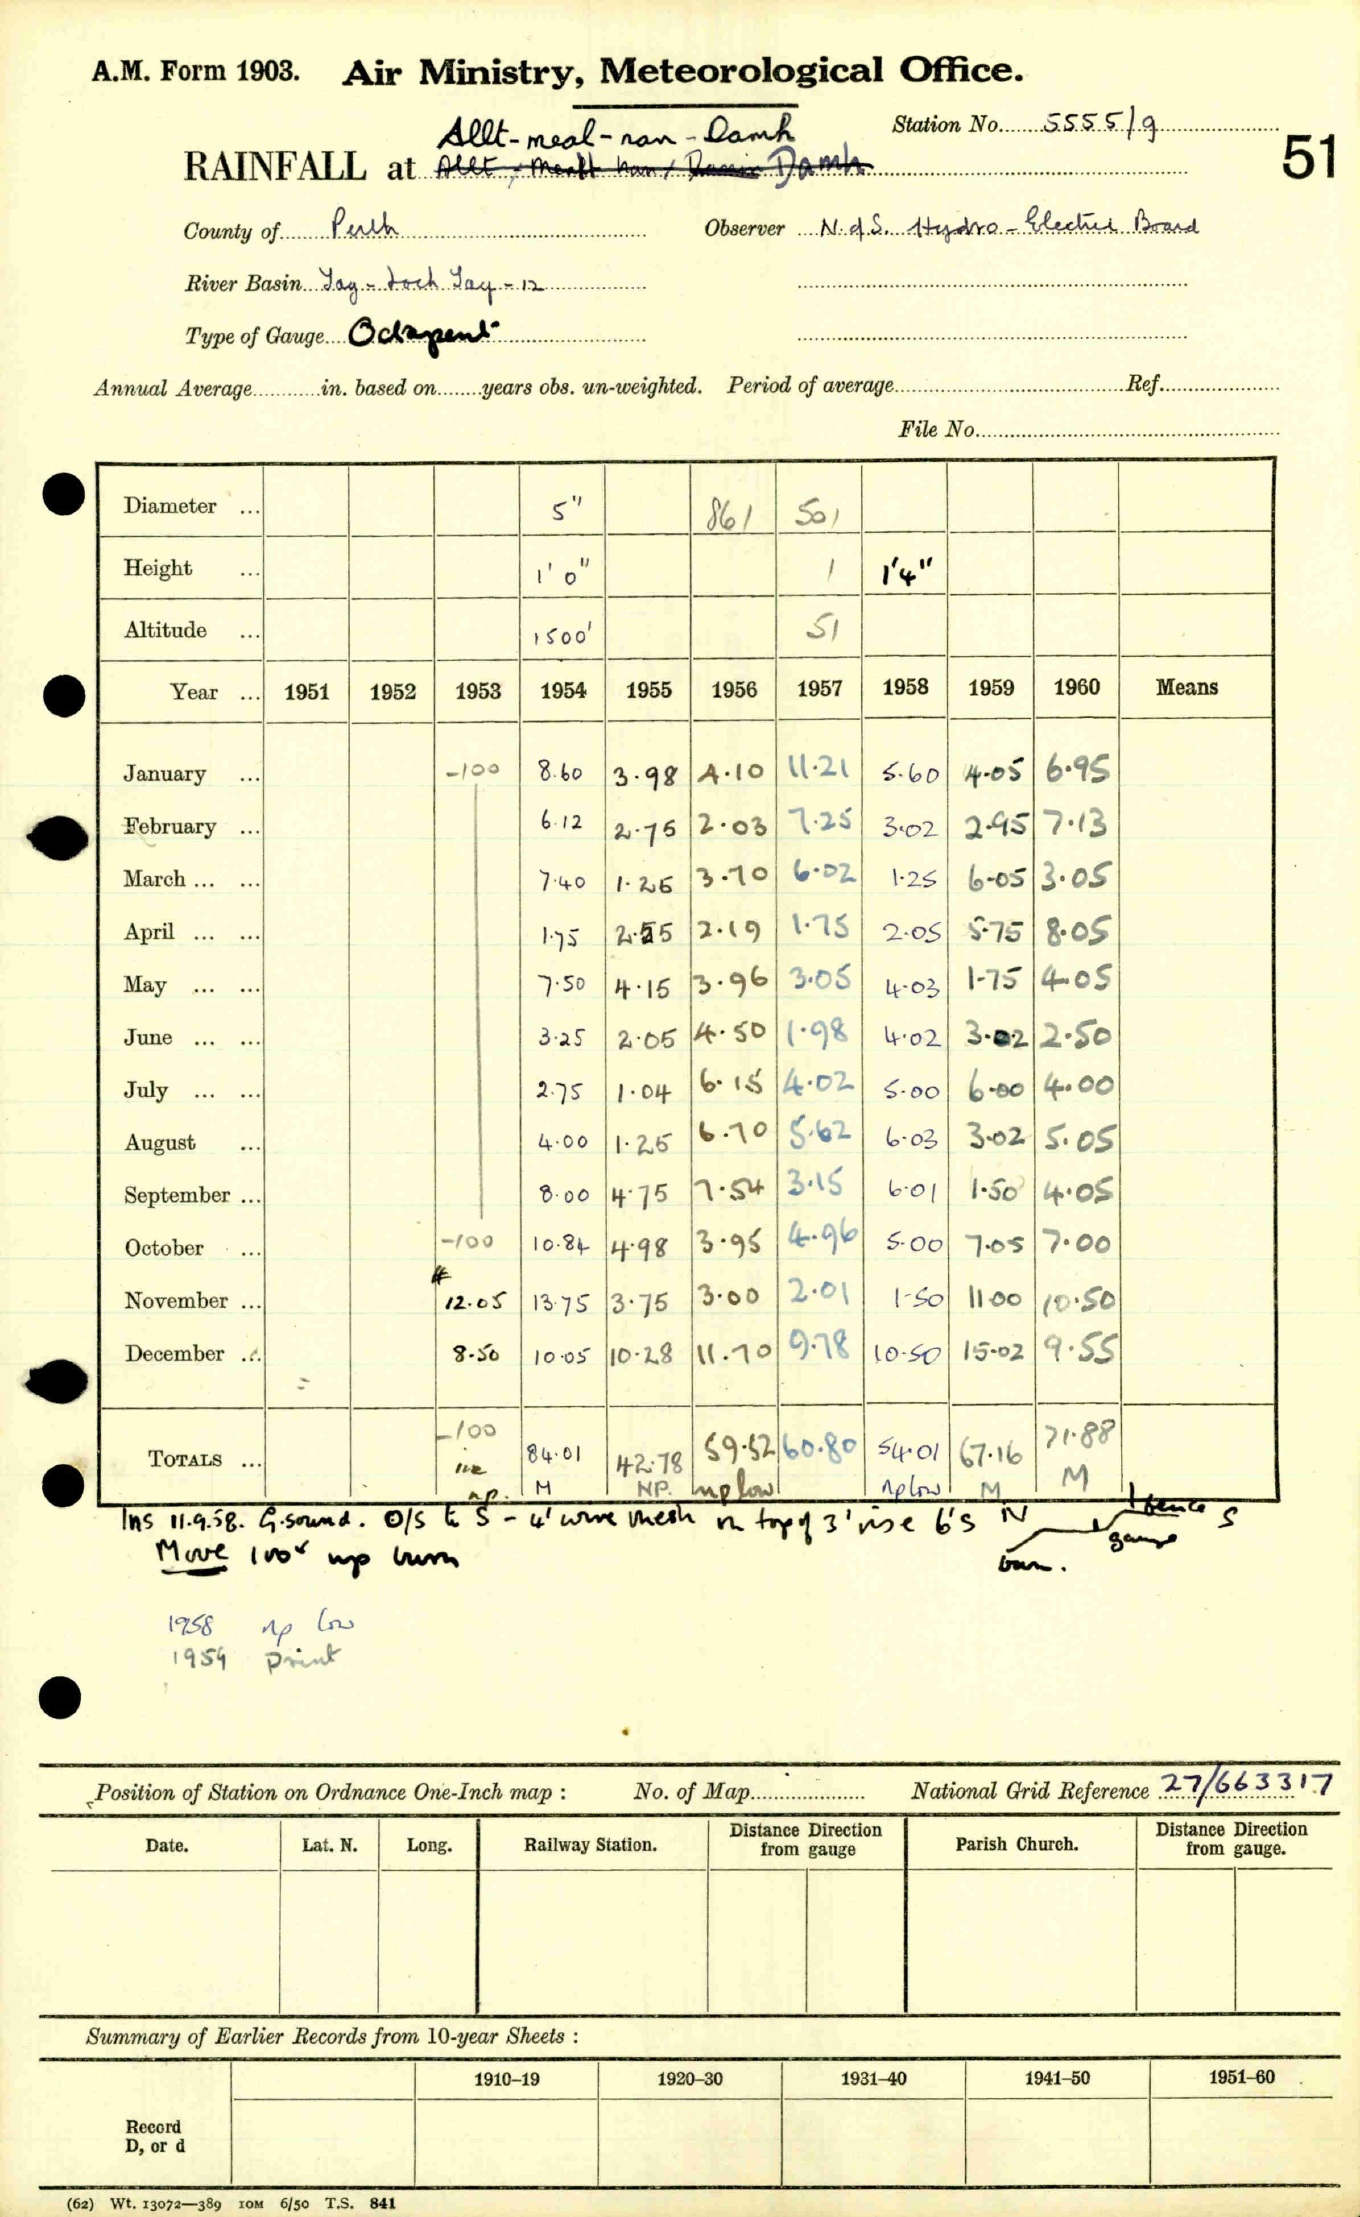 A.M. Form 1903. Air Ministry, Meteorological Office.
Station No. 5555/9
51
Allt-meal-nan-Damh
RAINFALL at Allt Meall nan Damh
County of Perth Observer N. of S. Hydro-Electric Board
River Basin Tay - Loch Tay - 12
Type of Gauge Octapent
Annual Average in. based on years obs. un-weighted. Period of average Ref.
File No.
Diameter ... 5" 861 501
Height ... 1'0" 1 1'4"
Altitude ... 1500' 51
Year ... 1951 1952 1953 1954 1955 1956 1957 1958 1959 1960 Means
January ... -100 8.60 3.98 4.10 11.21 5.60 4.05 6.95
February ... 6.12 2.75 2.03 7.25 3.02 2.95 7.13
March ... ... 7.40 1.25 3.70 6.02 1.25 6.05 3.05
April ... ... 1.75 2.55 2.19 1.75 2.05 5.75 8.05
May ... ... 7.50 4.15 3.96 3.05 4.03 1.75 4.05
June ... ... 3.25 2.05 4.50 1.98 4.02 3.02 2.50
July ... ... 2.75 1.04 6.15 4.02 5.00 6.00 4.00
August ... 4.00 1.25 6.70 5.62 6.03 3.02 5.05
September ... 8.00 4.75 7.54 3.15 6.01 1.50 4.05
October ... -100 10.84 4.98 3.95 4.96 5.00 7.05 7.00
November ... 12.05 13.75 3.75 3.00 2.01 1.50 11.00 10.50
December ... 8.50 10.05 10.28 11.70 9.78 10.50 15.02 9.55
TOTALS ... -100 84.01 42.78 59.52 60.80 54.01 67.16 71.88
np. M NP. np low np low M M
Ins 11.9.58. G.sound. O/S to S - 4' wire mesh on top of 3' rise 6'S N fence S
Move 100x up burn burn. gauge
1958 np low
1959 print
Position of Station on Ordnance One-Inch map : No. of Map National Grid Reference 27/663317
Date. Lat. N. Long. Railway Station. Distance Direction from gauge Parish Church. Distance Direction from gauge.
Summary of Earlier Records from 10-year Sheets :
1910–19 1920–30 1931–40 1941–50 1951–60
Record
D, or d
(62) Wt. 13072—389 10M 6/50 T.S. 841